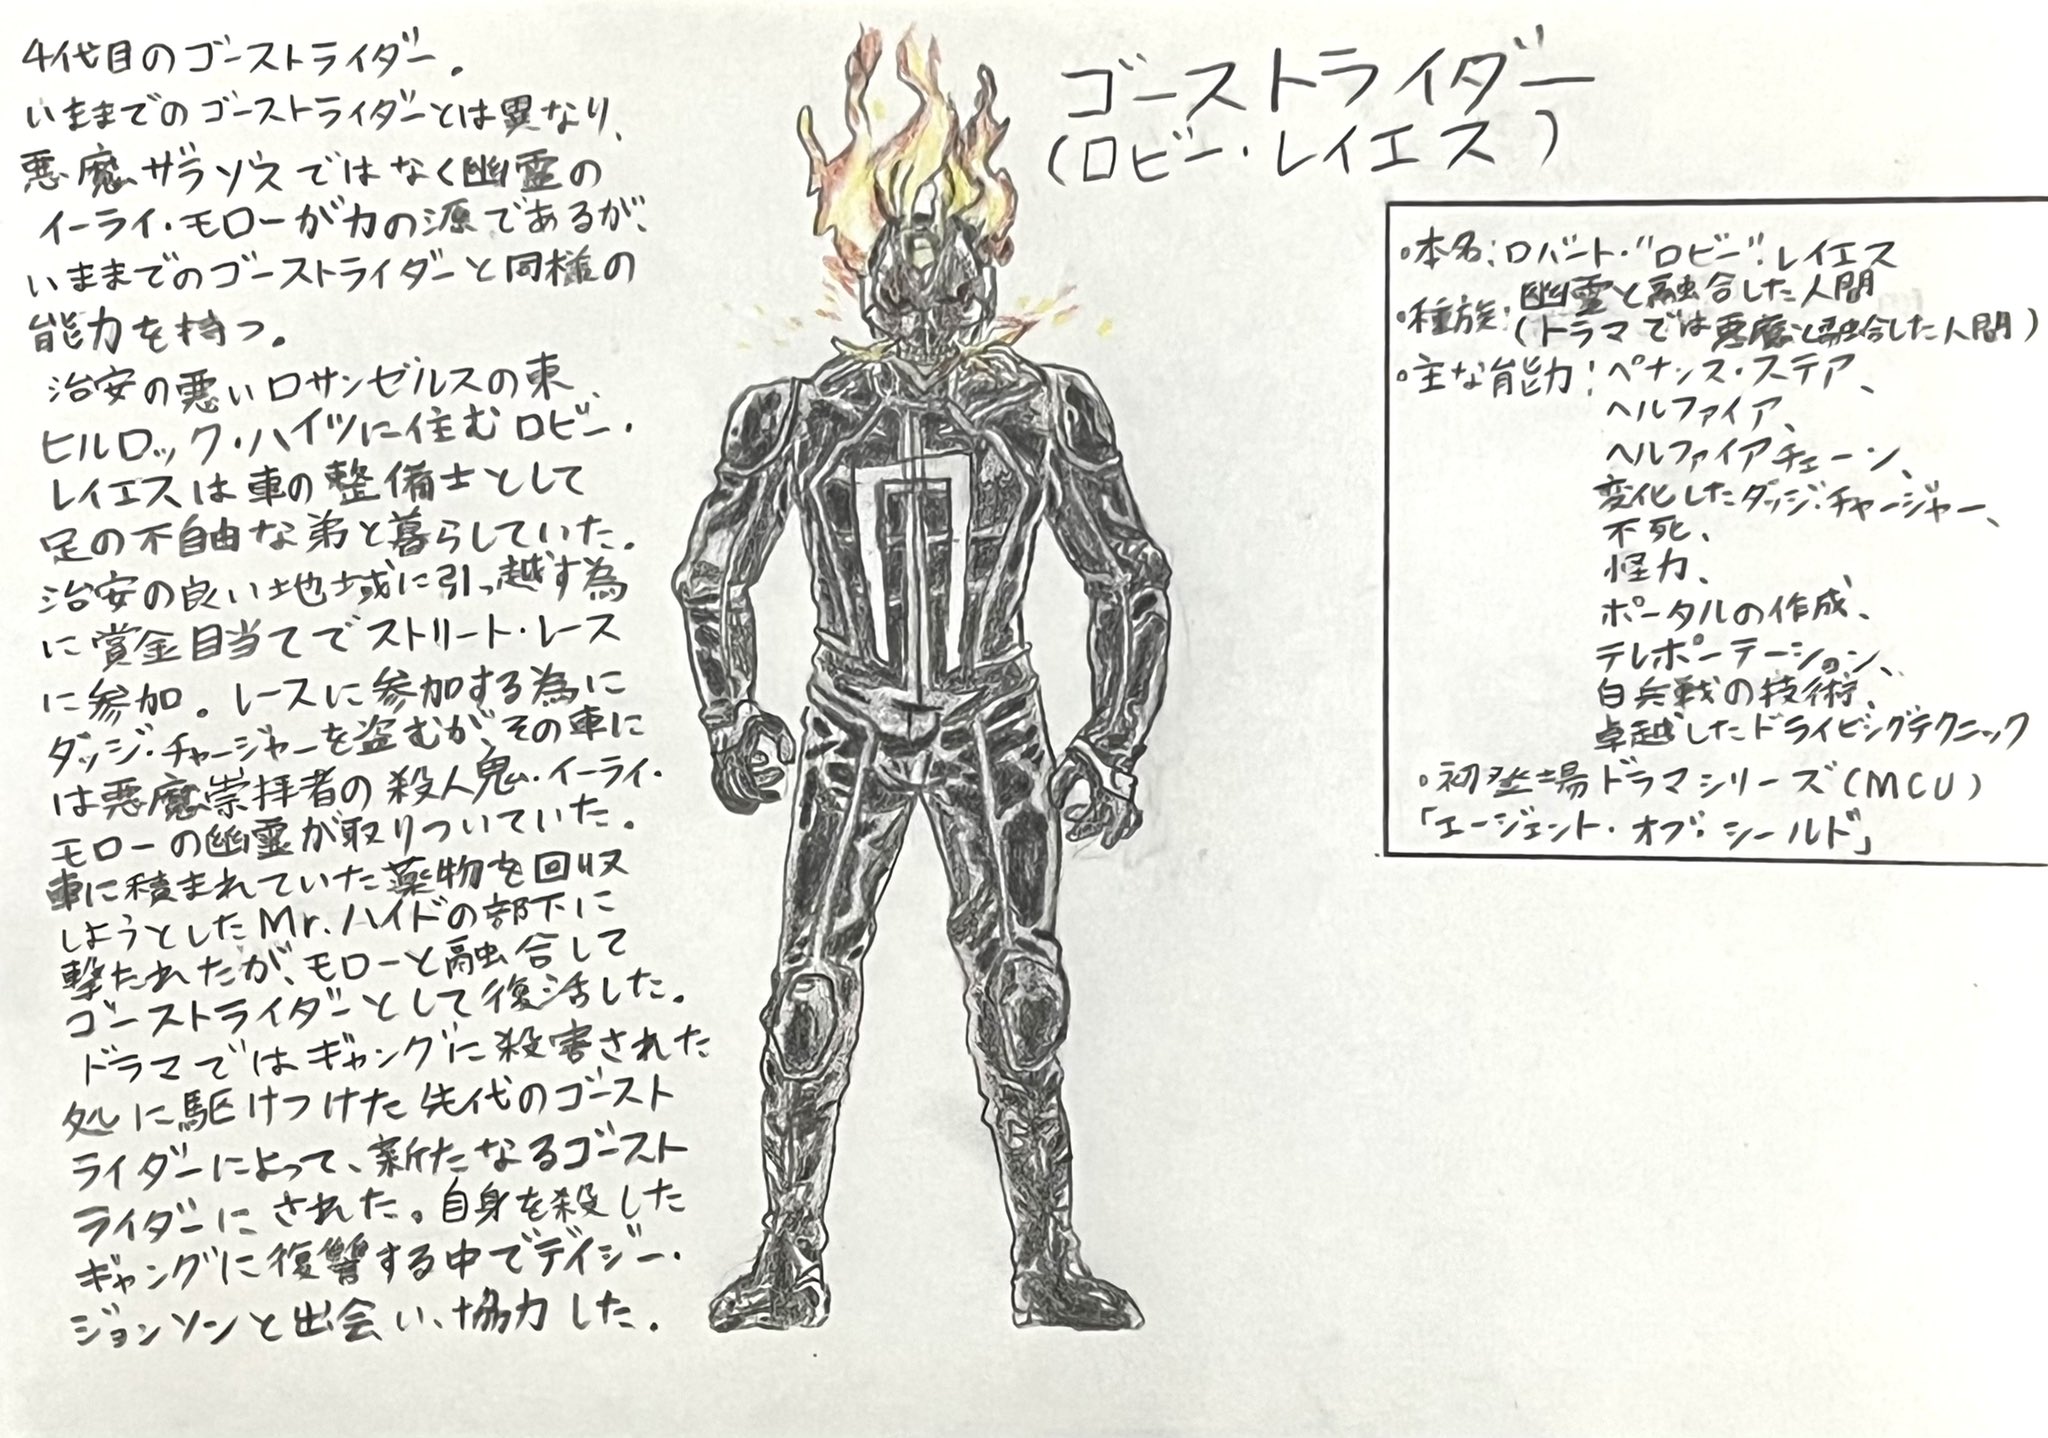 ゴーストライダー
(ロビー・レイエス)
4代目のゴーストライダー。
いままでのゴーストライダーとは異なり、
悪魔ザラゾウではなく幽霊の
イーライ・モローが力の源であるが、
いままでのゴーストライダーと同様の
能力を持つ。
治安の悪いロサンゼルスの東、
ヒルロック・ハイツに住むロビー・
レイエスは車の整備士として
足の不自由な弟と暮らしていた。
治安の良い地域に引っ越す為
に賞金目当てでストリート・レース
に参加。レースに参加する為に
ダッジ・チャージャーを盗むが、その車に
は悪魔崇拝者の殺人鬼・イーライ・
モローの幽霊が取りついていた。
車に積まれていた薬物を回収
しようとしたMr.ハイドの部下に
撃たれたが、モローと融合して
ゴーストライダーとして復活した。
ドラマではギャングに殺害された
処に駆けつけた先代のゴースト
ライダーによって、新たなるゴースト
ライダーにされた。自身を殺した
ギャングに復讐する中でデイジー・
ジョンソンと出会い、協力した。
・本名:ロバート・"ロビー"・レイエス
・種族:幽霊と融合した人間
(ドラマでは悪魔と融合した人間)
・主な能力:ペナンス・ステア、
ヘルファイア、
ヘルファイアチェーン、
変化したダッジ・チャージャー、
不死、
怪力、
ポータルの作成、
テレポーテーション、
白兵戦の技術、
卓越したドライビングテクニック
・初登場ドラマシリーズ(MCU)
「エージェント・オブ・シールド」